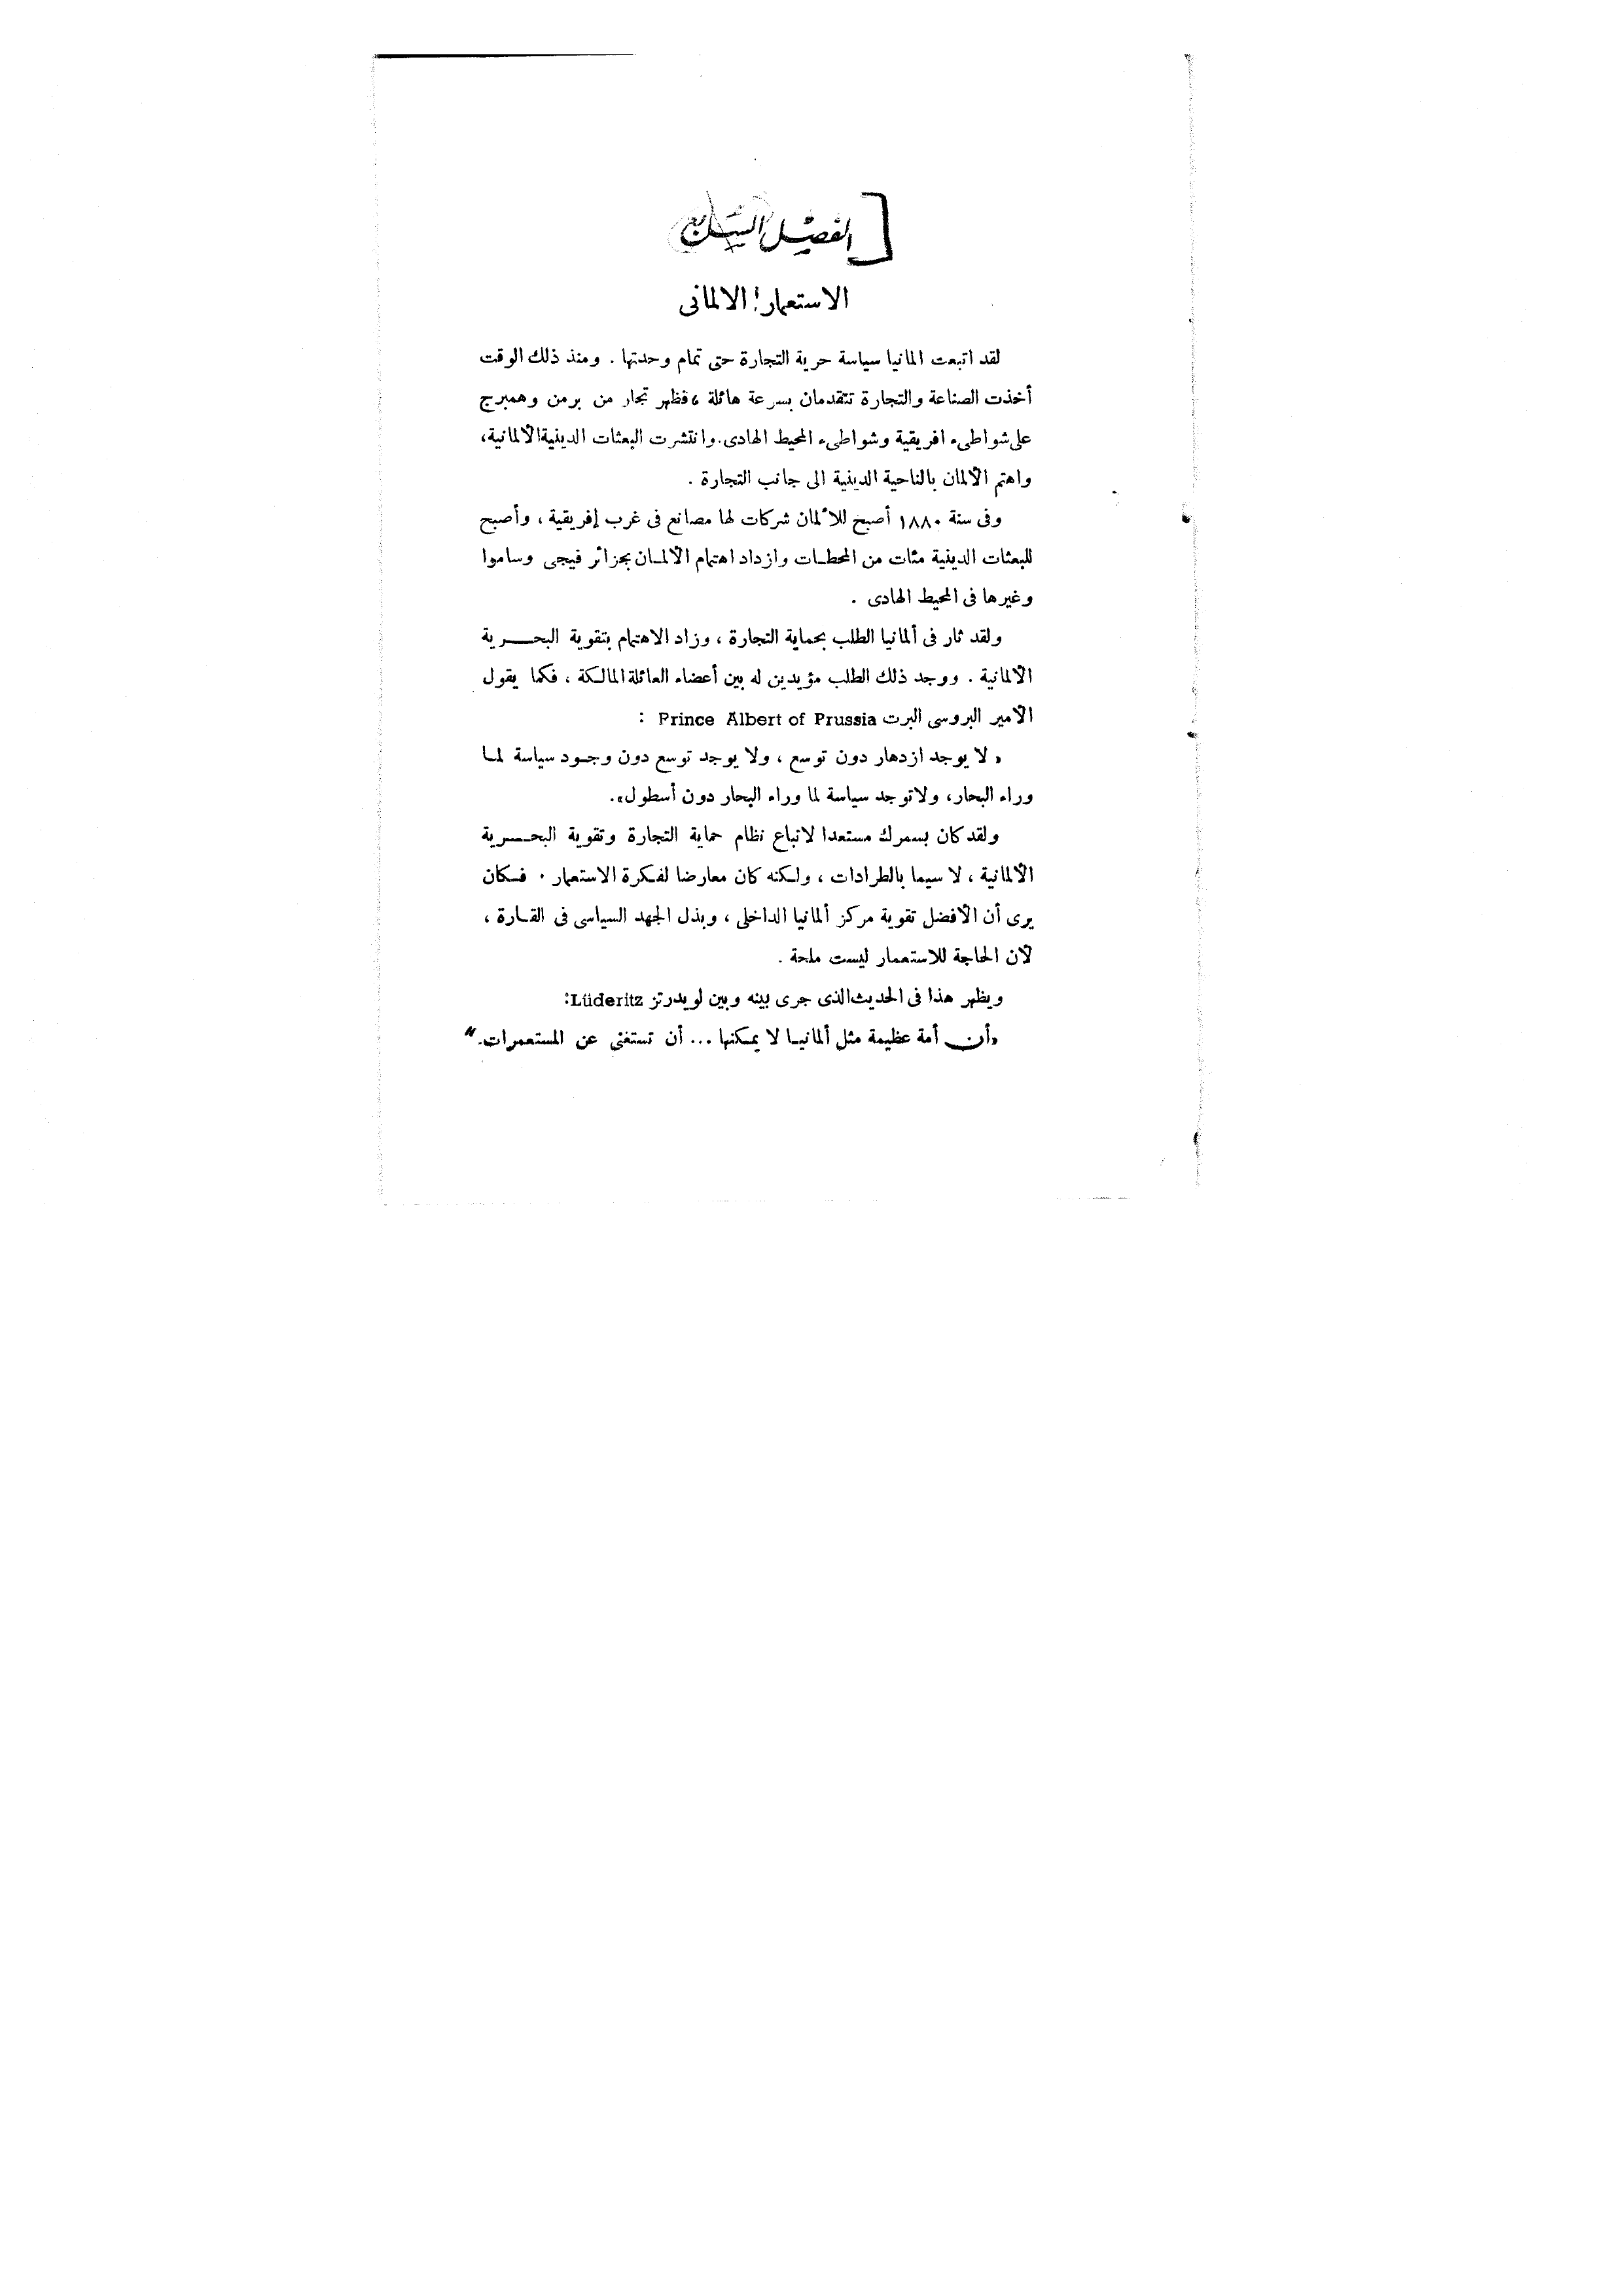 الفصل السابع
الاستعمار الالمانى
لقد اتبعت المانيا سياسة حرية التجارة حتى تمام وحدتها . ومنذ ذلك الوقت
أخذت الصناعة والتجارة تتقدمان بسرعة هائلة ، فظهر تجار من برمن وهمبرج
على شواطىء افريقية وشواطىء المحيط الهادى . وانتشرت البعثات الدينية الألمانية،
واهتم الألمان بالناحية الدينية الى جانب التجارة .
وفى سنة ١٨٨٠ أصبح للألمان شركات لها مصانع فى غرب إفريقية ، وأصبح
للبعثات الدينية مئات من المحطات وازداد اهتمام الألمان بجزائر فيجى وساموا
وغيرها فى المحيط الهادى .
ولقد ثار فى ألمانيا الطلب بحماية التجارة ، وزاد الاهتمام بتقوية البحرية
الألمانية . ووجد ذلك الطلب مؤيدين له بين أعضاء العائلة المالكة ، فكما يقول
الأمير البروسى البرت Prince Albert of Prussia :
« لا يوجد ازدهار دون توسع ، ولا يوجد توسع دون وجود سياسة لما
وراء البحار، ولا توجد سياسة لما وراء البحار دون أسطول».
ولقد كان بسمرك مستعدا لاتباع نظام حماية التجارة وتقوية البحرية
الألمانية ، لا سيما بالطرادات ، ولكنه كان معارضا لفكرة الاستعمار . فكان
يرى أن الأفضل تقوية مركز ألمانيا الداخلى ، وبذل الجهد السياسى فى القارة ،
لأن الحاجة للاستعمار ليست ملحة .
ويظهر هذا فى الحديث الذى جرى بينه وبين لويدرتز Lüderitz:
«أن أمة عظيمة مثل ألمانيا لا يمكنها ... أن تستغنى عن المستعمرات.»